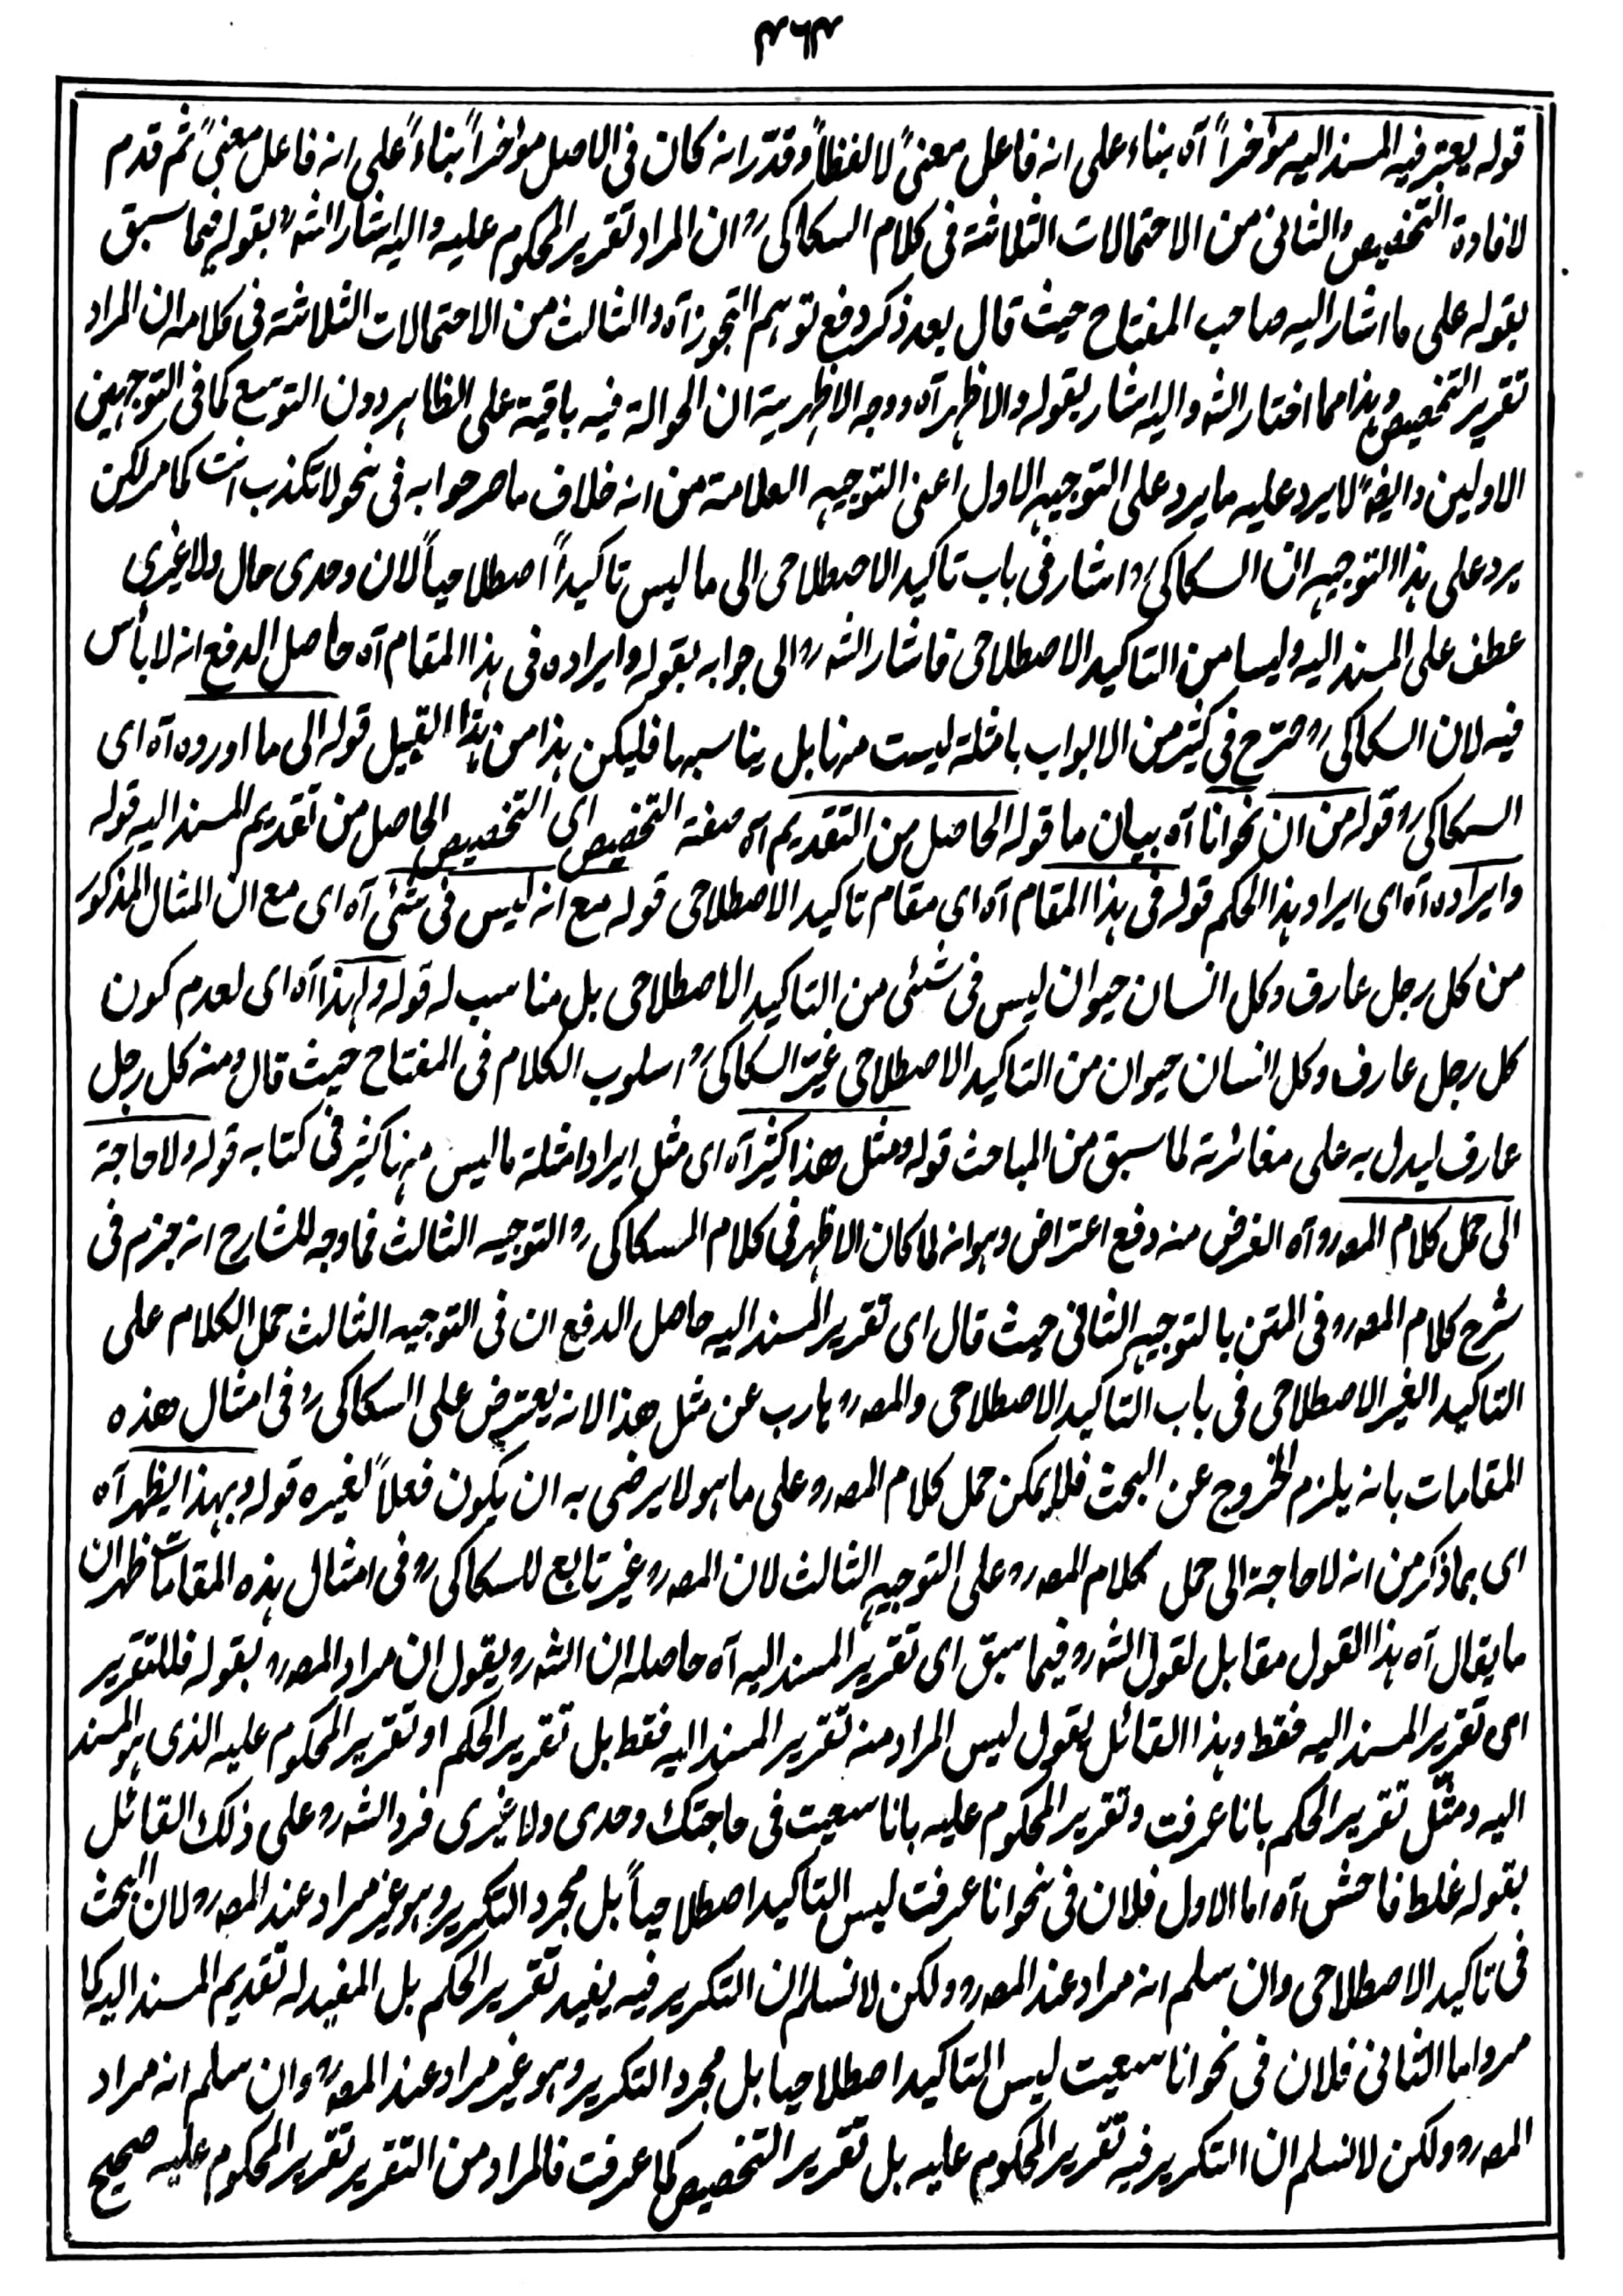 ۴۶۴
قوله يعتبر فيه المسند اليه مؤخراً آه بناء على انه فاعل معنىً لا لفظاً وقدّر انه كان فى الاصل مؤخراً بناءً على انه فاعل معنىً ثم قدم
لافادة التخصيص والثانى من الاحتمالات الثلاثة فى كلام السكاكى رو ان المراد تقرير المحكوم عليه واليه اشار الشرو بقوله فيما سبق
بقوله على ما اشار اليه صاحب المفتاح حيث قال بعد ذكر دفع توهم التجوز آه والثالث من الاحتمالات الثلاثة فى كلامه ان المراد
تقرير التخصيص وهذا مما اختار الشرو اليه اشار بقوله والاظهر آه ووجه الاظهرية ان الحوالة فيه باقية على الظاهر دون التوسع كما فى التوجيهين
الاولين وايضًا لا يرد عليه ما يرد على التوجيه الاول اعنى التوجيه العلامة من انه خلاف ما صرحوا به فى نحو لا تكذب انت كما مر لكن
يرد على هذا التوجيه ان السكاكى رو اشار فى باب تاكيد الاصطلاحى الى ما ليس تاكيداً اصطلاحياً لان وحدى حال ولا غيرى
عطف على المسند اليه وليسا من التاكيد الاصطلاحى فاشار الشرو الى جوابه بقوله وايراده فى هذا المقام آه حاصل الدفع انه لا بأس
فيه لان السكاكى رو صرّح فى كثير من الابواب بامثلة ليست منها بل يناسبها فليكن هذا من هذا القبيل قوله الى ما اورده آه اى
السكاكى رو قوله من ان نحو انا آه بيان ما قوله الحاصل من التقديم آه صفة التخصيص اى التخصيص الحاصل من تقديم المسند اليه قوله
وايراده آه اى ايراد هذا الحكم قوله فى هذا المقام آه اى مقام تاكيد الاصطلاحى قوله مع انه ليس فى شئى آه اى مع ان المثال المذكور
من كل رجل عارف وكل انسان حيوان ليس فى شئى من التاكيد الاصطلاحى بل مناسب له قوله ولهذا آه اى لعدم كون
كل رجل عارف وكل انسان حيوان من التاكيد الاصطلاحى غيّر السكاكى رو اسلوب الكلام فى المفتاح حيث قال ومنه كل رجل
عارف ليدل به على مغائرته لما سبق من المباحث قوله ومثل هذا كثير آه اى مثل ايراد امثلة ما ليس منها كثير فى كتابه قوله ولا حاجة
الى حمل كلام المصرو آه الغرض منه دفع اعتراض وهو انه لما كان الاظهر فى كلام السكاكى رو التوجيه الثالث فما وجه للشارح انه جزم فى
شرح كلام المصرو فى المتن بالتوجيه الثانى حيث قال اى تقرير المسند اليه حاصل الدفع ان فى التوجيه الثالث حمل الكلام على
التاكيد الغير الاصطلاحى فى باب التاكيد الاصطلاحى والمصرو هارب عن مثل هذا لانه يعترض على السكاكى رو فى امثال هذه
المقامات بانه يلزم الخروج عن البحث فلا يمكن حمل كلام المصرو على ما هو لا يرضى به ان يكون فعلاً لغيره قوله وبهذا يظهر آه
اى بما ذكر من انه لا حاجة الى حمل كلام المصرو على التوجيه الثالث لان المصرو غير تابع للسكاكى رو فى امثال هذه المقامات ظهر ان
ما يقال آه هذا القول مقابل لقول الشرو فيما سبق اى تقرير المسند اليه آه حاصله ان الشرو يقول ان مراد المصرو بقوله فللتقرير
اى تقرير المسند اليه فقط وهذا القائل يقول ليس المراد منه تقرير المسند اليه فقط بل تقرير الحكم او تقرير المحكوم عليه الذى هو المسند
اليه ومثّل تقرير الحكم بانا عرفت وتقرير المحكوم عليه بانا سعيت فى حاجتك وحدى ولا غيرى فرد الشرو على ذلك القائل
بقوله غلط فاحش آه اما الاول فلان فى نحو انا عرفت ليس التاكيد اصطلاحياً بل مجرد التكرير وهو غير مراد عند المصرو لان البحث
فى تاكيد الاصطلاحى وان سلم انه مراد عند المصرو ولكن لا نسلم ان التكرير فيه يفيد تقرير الحكم بل المفيد له تقديم المسند اليه كما
مر واما الثانى فلان فى نحو انا سعيت ليس التاكيد اصطلاحيا بل مجرد التكرير وهو غير مراد عند المصرو وان سلم انه مراد
المصرو ولكن لا نسلم ان التكرير فيه تقرير المحكوم عليه بل تقرير التخصيص كما عرفت فالمراد من التقرير تقرير المحكوم عليه صحيح